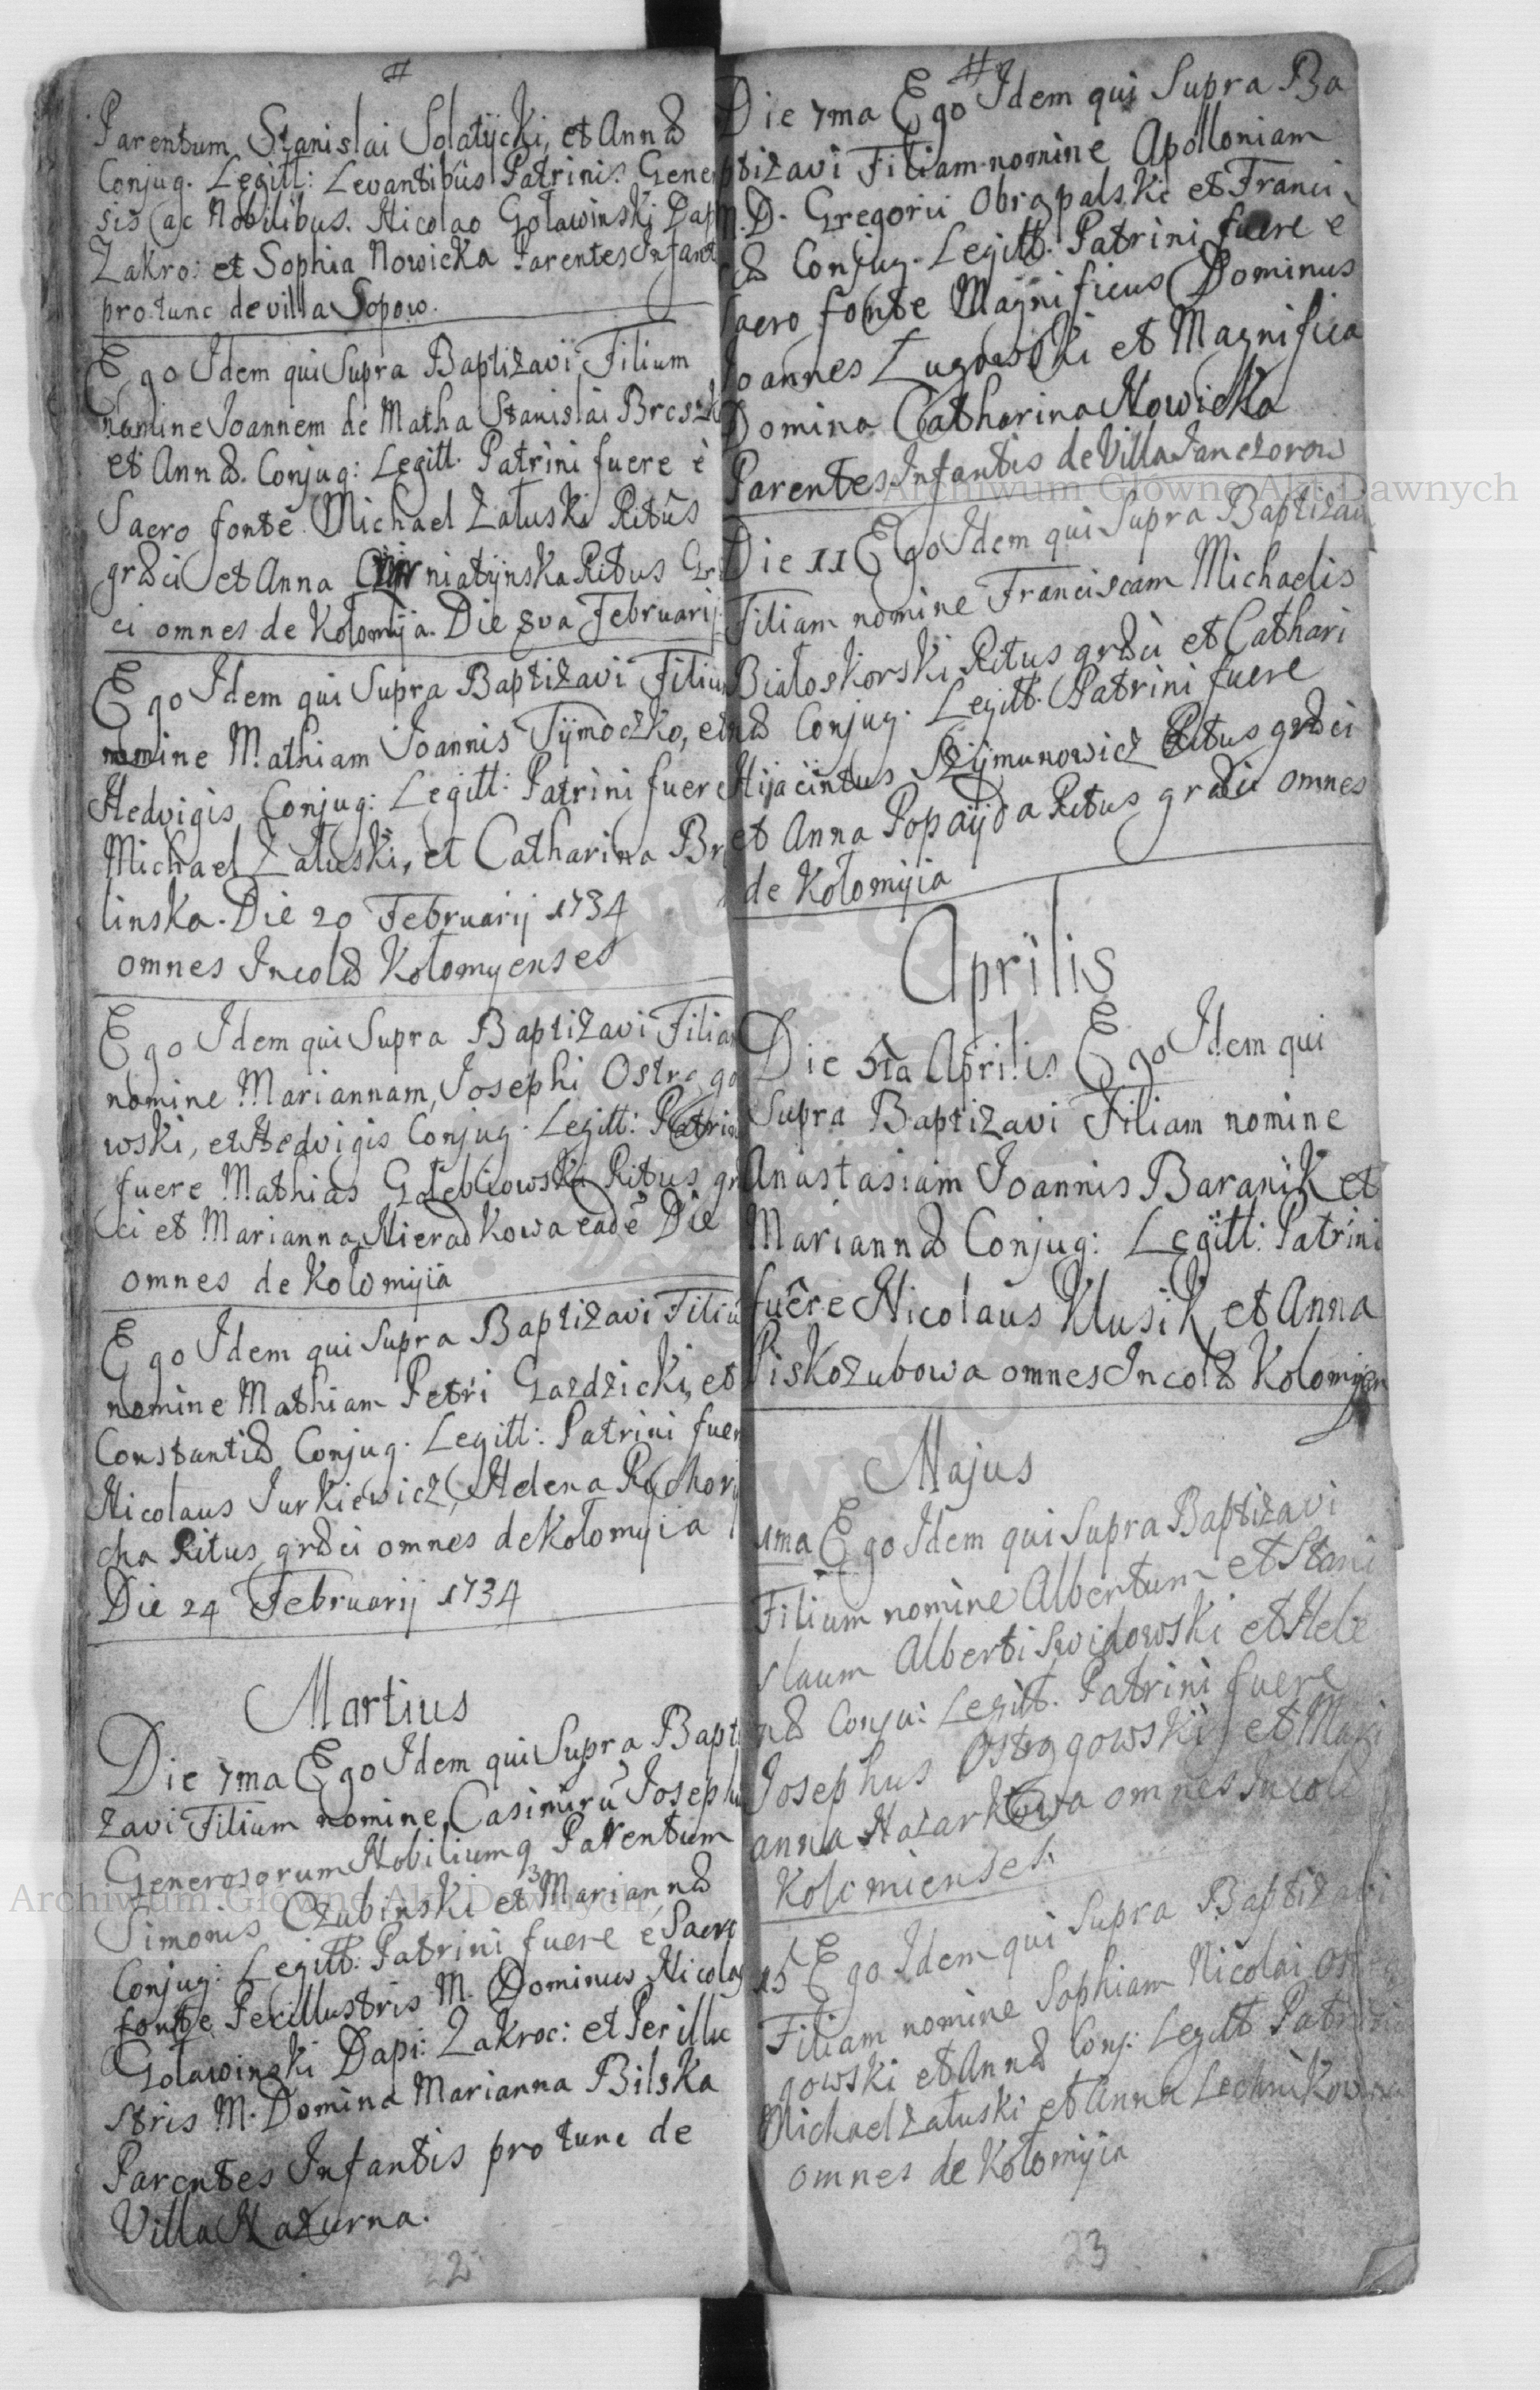 #
Parentum Stanislai Solatycki, et Annæ
Conjug. Legitt: Levantibus Patrinis. Gene
sis ac Nobilibus. Nicolao Golawinski Dap
Zakro: et Sophia Nowicka Parentes Infant
pro tunc de villa Sopow.
Ego Idem qui Supra Baptizavi Filium
nomine Joannem de Matha Stanislai Breszk
et Annæ. Conjug: Legitt. Patrini fuere è
Sacro fonte Michael Załuski Ritûs
græci et Anna niatynska Ritus Gr
ci omnes de Kołomyja. Die 8va Februarij
Ego Idem qui Supra Baptizavi Filiu
nomine Mathiam Joannis Tymoczko, et
Hedvigis Conjug: Legitt: Patrini fuere
Michael Załuski, et Catharina Br
linska. Die 20 Februarij 1734
omnes Incolæ Kołomyenses
Ego Idem qui Supra Baptizavi Filia
nomine Mariannam, Josephi Ostrogo
wski, et Hedvigis Conjug. Legitt: Patrin
fuere Mathias Gołebiowski Ritus gr
ci et Marianna Nieradkowa eadē Die
omnes de Kołomyiá
Ego Idem qui Supra Baptizavi Filiu
nomine Mathiam Petri Gazdzicki, et
Constantiæ Conjug. Legitt: Patrini fuer
Nicolaus Jurkiewicz, Helena Rychory
cha Ritus græci omnes de Kołomyia
Die 24 Februarij 1734
Martius
Die 7ma Ego Idem qui Supra Bapt
zavi Filium nomine Casimirū Josephu
Generosorum Nobiliumq Parentum
Simonis Czubinski et Mariannæ
Conjug: Legitt: Patrini fuere e Sacro
fonte Perillustris M. Dominus Nicola
Golawinski Dapi: Zakroc: et Perillu
stris M. Domina Marianna Bilska
Parentes Infantis pro tunc de
Villa Nazurna.
22
#
Die 7ma Ego Idem qui Supra Ba
ptizavi Filiam nomine Apolloniam
M.D. Gregorii Obrąpalski et Franci
cæ Conjug. Legitt. Patrini fuere è
Sacro fonte Magnificus Dominus
Joannes Ługowski et Magnifica
Domina Catharina Nowicka
Parentes Infantis de Villa Janczorow
Die 11 Ego Idem qui Supra Baptizavi
Filiam nomine Franciscam Michaelis
Białoskorski Ritus græci et Cathari
næ Conjug. Legitt. Patrini fuere
Hijacintus Szymunowicz Ritus græci
et Anna Popayda Ritus græci omnes
de Kołomyia
Aprilis
Die 5ta Aprilis Ego Idem qui
Supra Baptizavi Filiam nomine
Anastasiam Joannis Baranik et
Mariannæ Conjug: Legitt: Patrini
fuêre Nicolaus Klusik, et Anna
Piskozubowa omnes Incolæ Kolomyen
Majus
1ma Ego Idem qui Supra Baptizavi
Filium nomine Albertum et Stani
slaum Alberti Swidowski et Hele
næ Conju: Legitt. Patrini fuere
Josephus Ostrogowski et Mari
anna Nazarkowa omnes Incolæ
Kolomienses
15 Ego Idem qui Supra Baptizavi
Filiam nomine Sophiam Nicolai Ostro
gowski et Annæ Conj: Legitt Patrini
Michael Załuski et Anna Lechnikowa
omnes de Kołomyia
23
Archiwum Główne Akt Dawnych
Archiwum Główne Akt Dawnych